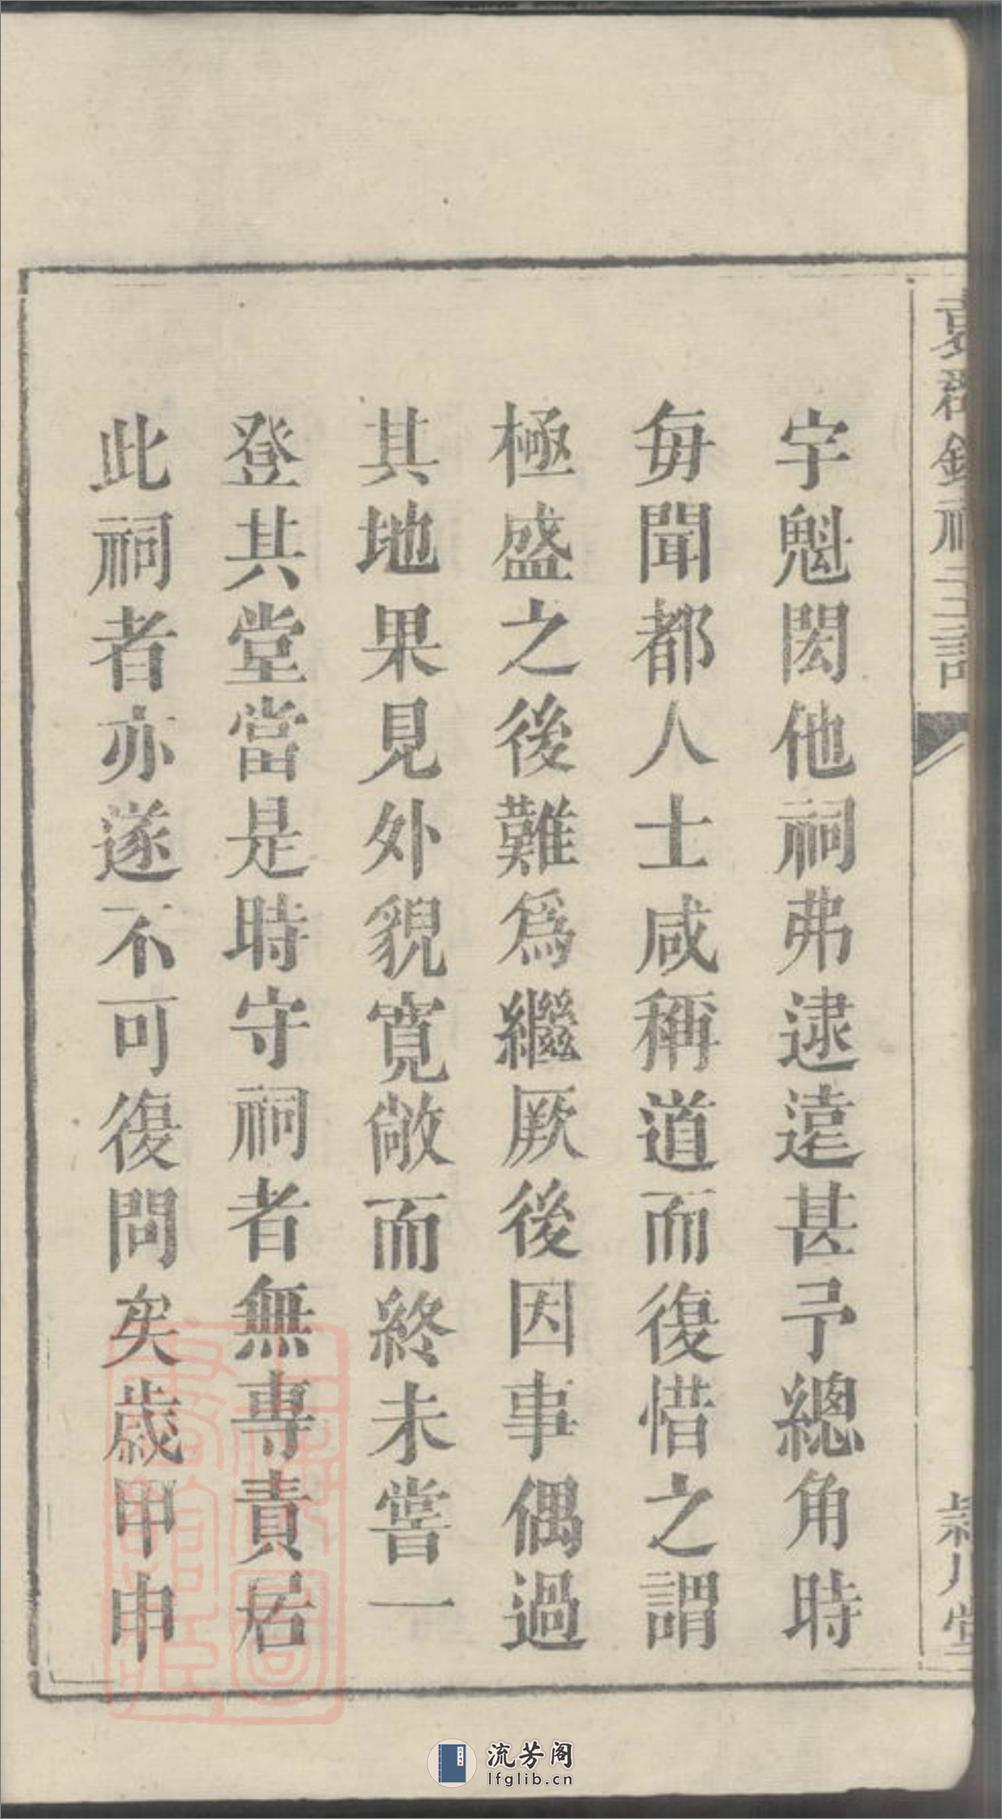 宇魁閎他祠弗逮遠甚予總角時
每聞都人士咸稱道而復惜之謂
極盛之後難爲繼厥後因事偶過
其地果見外貌寬敞而終未嘗一
登其堂當是時守祠者無專責居
此祠者亦遂不可復問矣歲甲申
流芳阁
lfglib.cn